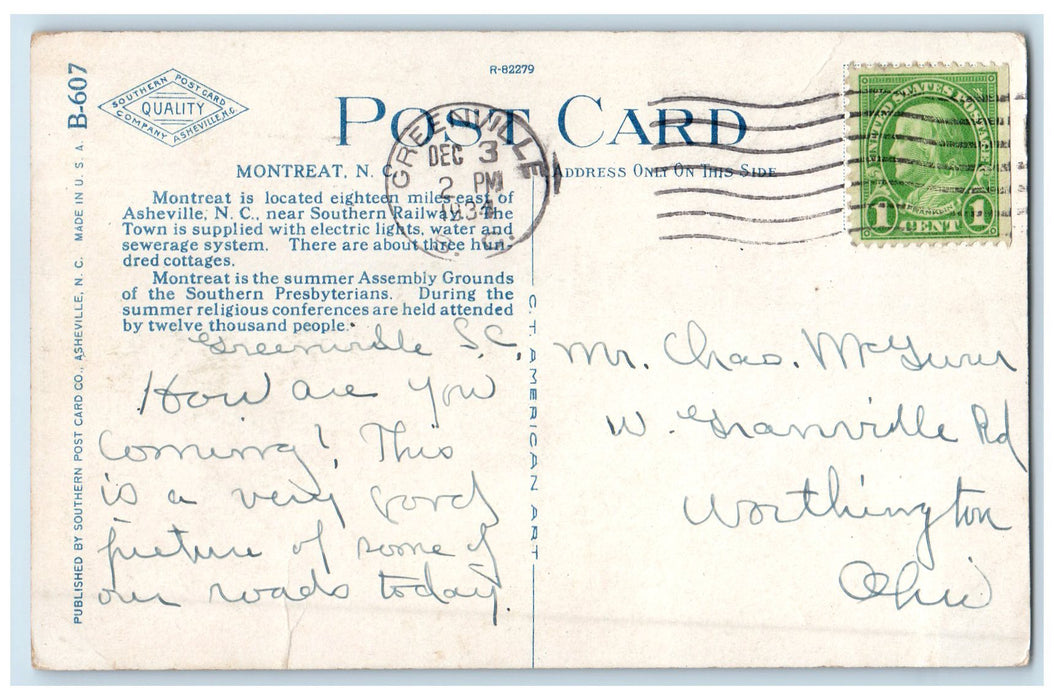 R-82279
B-607
SOUTHERN POSTCARD
QUALITY
COMPANY ASHEVILLE, N.C.
POST CARD
MONTREAT, N. C.
ADDRESS ONLY ON THIS SIDE
GREENVILLE
DEC 3
2 PM
1934
S. C.
UNITED STATES POSTAGE
FRANKLIN
1 CENT 1
Montreat is located eighteen miles east of
Asheville, N. C., near Southern Railway. The
Town is supplied with electric lights, water and
sewerage system. There are about three hun-
dred cottages.
Montreat is the summer Assembly Grounds
of the Southern Presbyterians. During the
summer religious conferences are held attended
by twelve thousand people.
PUBLISHED BY SOUTHERN POST CARD CO., ASHEVILLE, N. C. MADE IN U. S. A.
C. T. AMERICAN ART
Greenville S.C.,
How are you
coming! This
is a very good
picture of some of
our roads today.
Mr. Chas.
W. Granville Rd
Worthington
Ohio